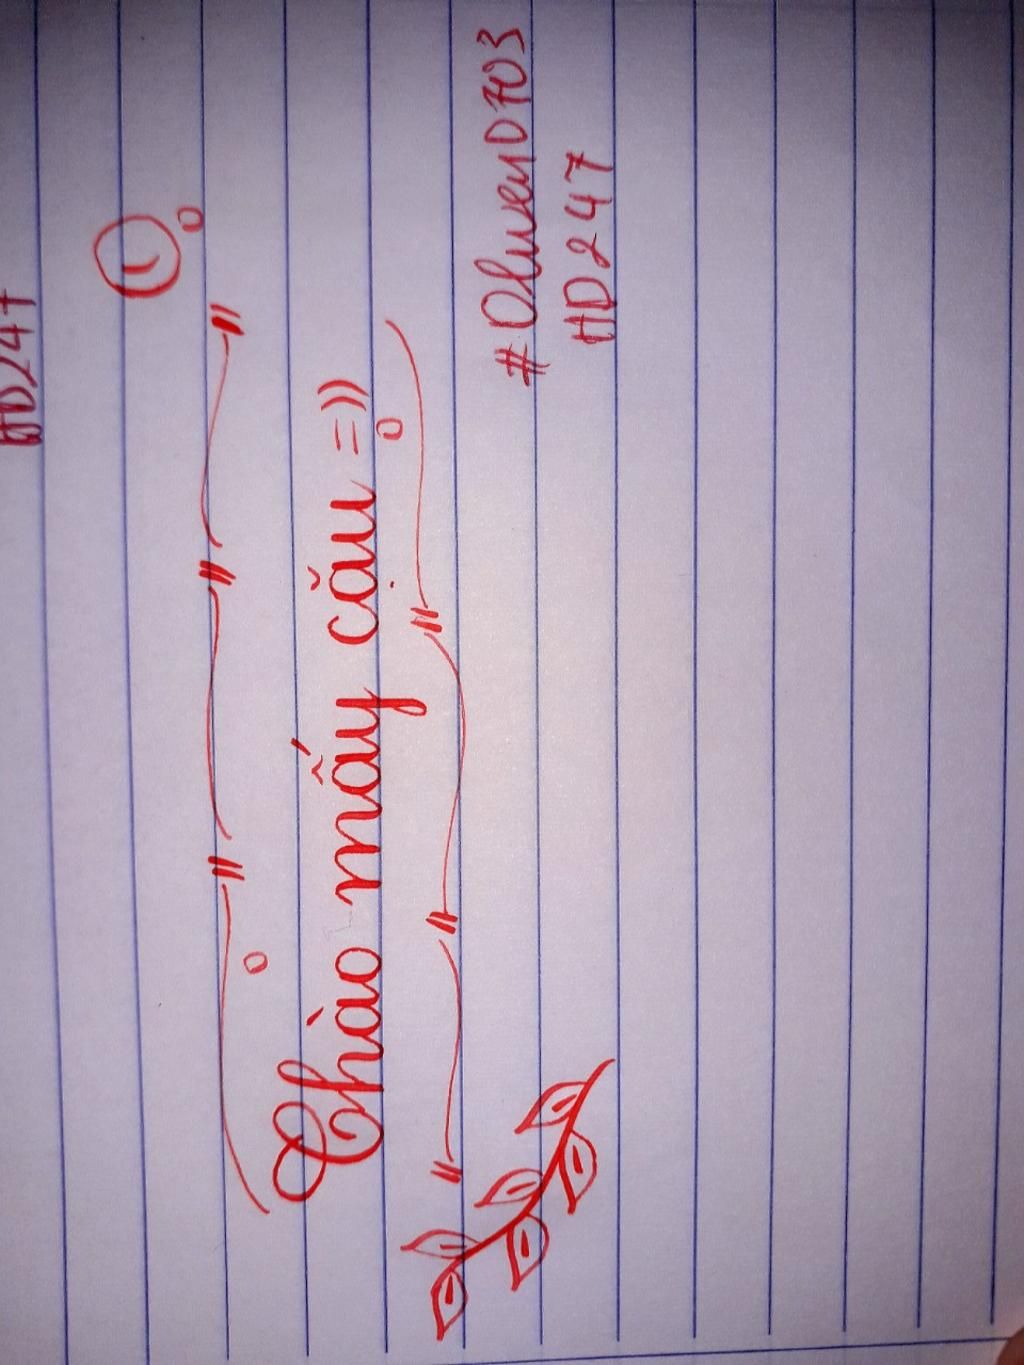 HD247
Chào mấy cậu =))
#Oliver10703
HD247